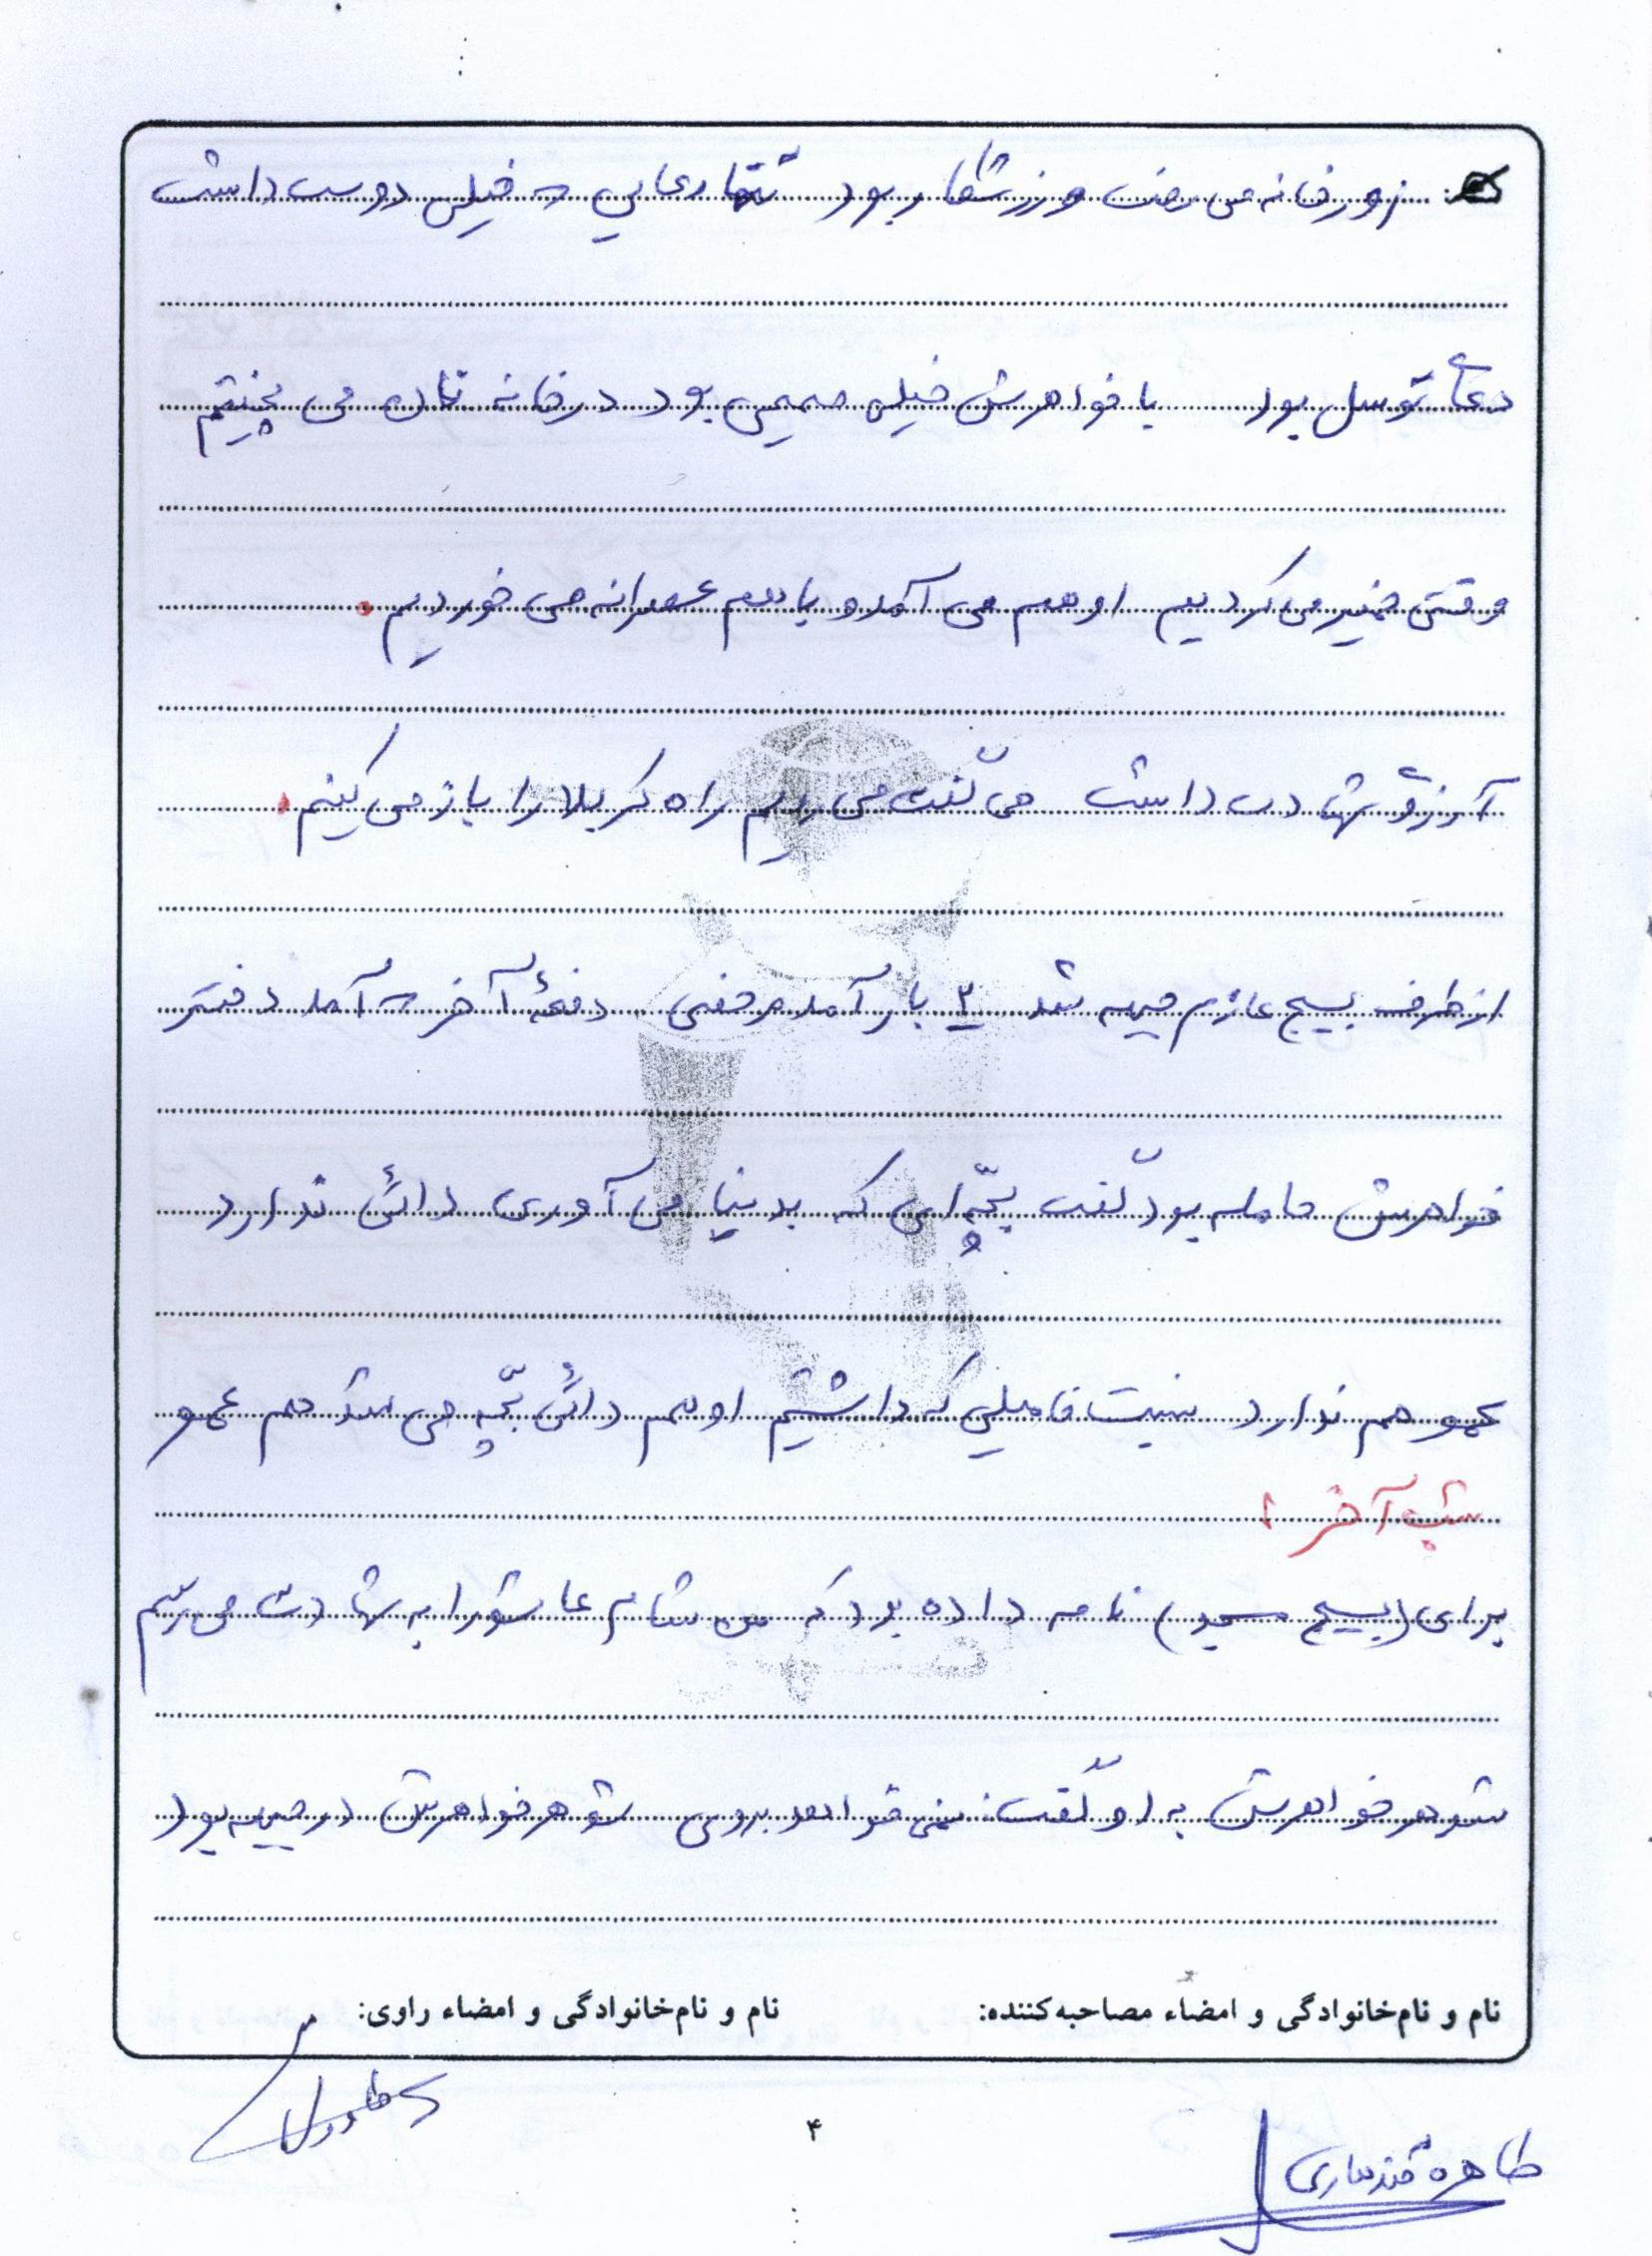 زورخانه می رفت ورزشکار بود تنها دعایی که خیلی دوست داشت
دعای توسل بود با خواهرش خیلی صمیمی بود در خانه نان می پختیم
وقتی خمیر می کردیم او هم می آمد و با هم عصرانه می خوردیم.
آرزوی شهادت داشت می گفت می رویم راه کربلا را باز می کنیم.
از طرف بسیج عازم جبهه شد ۳ بار آمد مرخصی دفعۀ آخر که آمد دفتر
خواهرش حامله بود گفت بچّه ای که بدنیا می آوری دائی ندارد
عمو هم ندارد نسبت فامیلی که داشتیم او هم دائی بچّه می شد هم عمو
شب آخر :
برای (بسیج مسجد) نامه داده بود که من شام عاشورا به شهادت می رسم
شوهر خواهرش به او گفت: نمی خواهد بروی شوهر خواهرش در جبهه بود
نام و نام‌خانوادگی و امضاء مصاحبه‌کننده: نام و نام‌خانوادگی و امضاء راوی:
طاهره قندهاری
۴